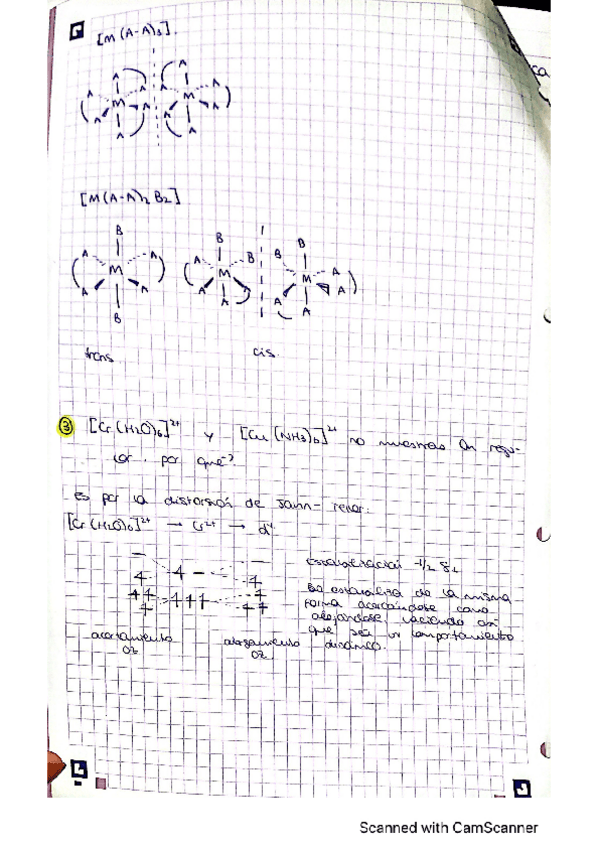 [M(A-A)3]
A A
A M A A M A
A A A A
A A
[M(A-A)2 B2]
B B B
A A A B B A
M M M
A A A A A
B A A
trans cis.
③ [Cr(H2O)6]2+ y [Cu(NH3)6]2+ no muestran Oh regu-
lar. por qué?
es por la distorsión de Jahn-
[Cr(H2O)6]2+ → Cr2+ → d4
Estabilización -1/2 δ1
Se estabiliza de la misma
forma acercándose como
alejándose haciendo así
que sea un comportamiento
dinámico.
acortamiento alargamiento
Oz. Oz.
Scanned with CamScanner